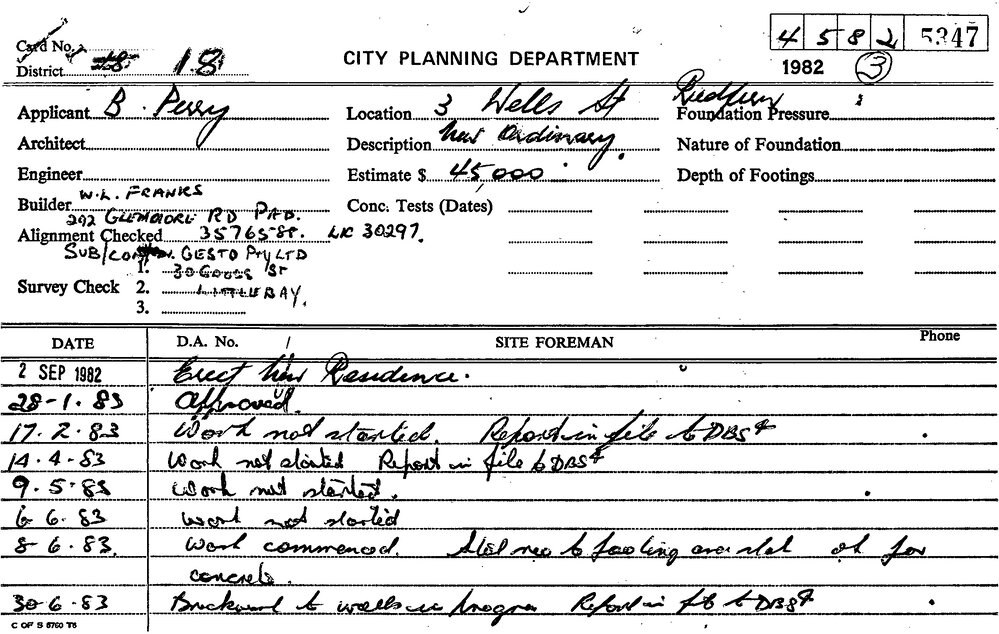 4 5 8 2 5347
Card No.
District 18 18
CITY PLANNING DEPARTMENT
1982 3
Applicant B. Perry
Location 3 Wells St Redfern
Foundation Pressure
Architect
Description New Ordinary.
Nature of Foundation
Engineer
Estimate $ 45,000
Depth of Footings
Builder W.L. FRANKS
Conc. Tests (Dates)
292 GLENMORE RD PAD.
Alignment Checked 3576588. LIC 30297.
SUB/CON GESTO Pty LTD
1. 30 St
Survey Check 2. LITTLE BAY.
3.
DATE D.A. No. SITE FOREMAN Phone
2 SEP 1982 Erect New Residence.
28-1.83 Approved.
17.2.83 Work not started. Report in file to DBS
14.4.83 Work not started Report in file to DBS
9.5.83 Work not started.
6 6.83 Work not started
8-6.83. Work commenced. Steel to footing and slab ok for
concrete.
30-6.83 Brickwork to walls in progress Report in file to DBS
C OF S 6760 T6